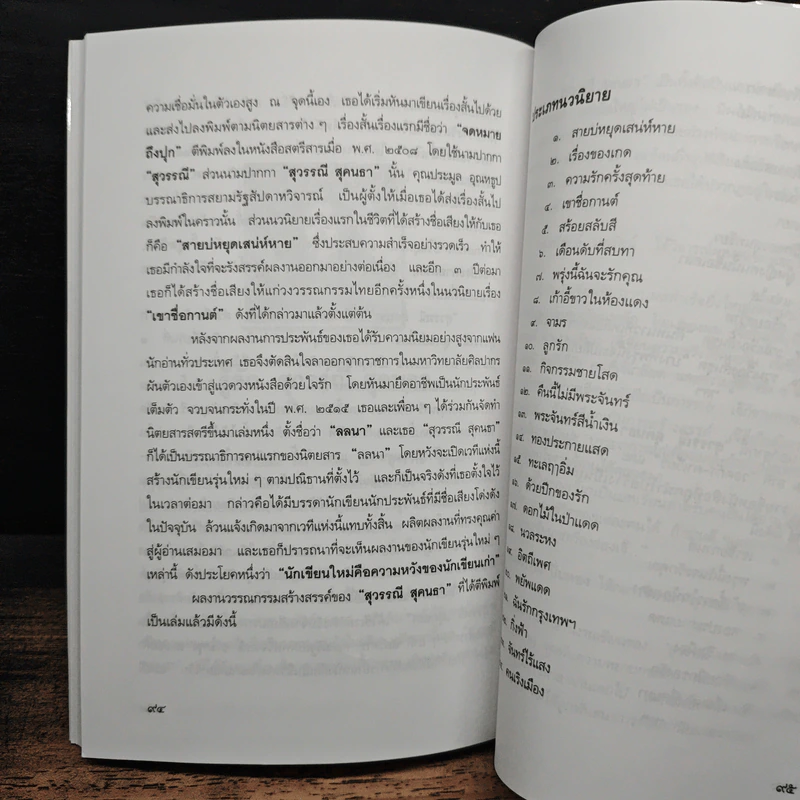 ความเชื่อมั่นในตัวเองสูง ณ จุดนี้เอง เธอได้เริ่มหันมาเขียนเรื่องสั้นไปด้วย
และส่งไปลงพิมพ์ตามนิตยสารต่าง ๆ เรื่องสั้นเรื่องแรกมีชื่อว่า "จดหมาย
ถึงปุก" ตีพิมพ์ลงในหนังสือสตรีสารเมื่อ พ.ศ. ๒๕๐๘ โดยใช้นามปากกา
"สุวรรณี" ส่วนนามปากกา "สุวรรณี สุคนธา" นั้น คุณประมูล อุณหธูป
บรรณาธิการสยามรัฐสัปดาหวิจารณ์ เป็นผู้ตั้งให้เมื่อเธอได้ส่งเรื่องสั้นไป
ลงพิมพ์ในคราวนั้น ส่วนนวนิยายเรื่องแรกในชีวิตที่ได้สร้างชื่อเสียงให้กับเธอ
ก็คือ "สายบ่หยุดเสน่ห์หาย" ซึ่งประสบความสำเร็จอย่างรวดเร็ว ทำให้
เธอมีกำลังใจที่จะรังสรรค์ผลงานออกมาอย่างต่อเนื่อง และอีก ๓ ปีต่อมา
เธอก็ได้สร้างชื่อเสียงให้แก่วงวรรณกรรมไทยอีกครั้งหนึ่งในนวนิยายเรื่อง
"เขาชื่อกานต์" ดังที่ได้กล่าวมาแล้วตั้งแต่ต้น
หลังจากผลงานการประพันธ์ของเธอได้รับความนิยมอย่างสูงจากแฟน
นักอ่านทั่วประเทศ เธอจึงตัดสินใจลาออกจากราชการในมหาวิทยาลัยศิลปากร
ผันตัวเองเข้าสู่แวดวงหนังสือด้วยใจรัก โดยหันมายึดอาชีพเป็นนักประพันธ์
เต็มตัว จวบจนกระทั่งในปี พ.ศ. ๒๕๑๕ เธอและเพื่อน ๆ ได้ร่วมกันจัดทำ
นิตยสารสตรีขึ้นมาเล่มหนึ่ง ตั้งชื่อว่า "ลลนา" และเธอ "สุวรรณี สุคนธา"
ก็ได้เป็นบรรณาธิการคนแรกของนิตยสาร "ลลนา" โดยหวังจะเปิดเวทีแห่งนี้
สร้างนักเขียนรุ่นใหม่ ๆ ตามปณิธานที่ตั้งไว้ และก็เป็นจริงดังที่เธอตั้งใจไว้
ในเวลาต่อมา กล่าวคือได้มีบรรดานักเขียนนักประพันธ์ที่มีชื่อเสียงโด่งดัง
ในปัจจุบัน ล้วนแจ้งเกิดมาจากเวทีแห่งนี้แทบทั้งสิ้น ผลิตผลงานที่ทรงคุณค่า
สู่ผู้อ่านเสมอมา และเธอก็ปรารถนาที่จะเห็นผลงานของนักเขียนรุ่นใหม่ ๆ
เหล่านี้ ดังประโยคหนึ่งว่า "นักเขียนใหม่คือความหวังของนักเขียนเก่า"
ผลงานวรรณกรรมสร้างสรรค์ของ "สุวรรณี สุคนธา" ที่ได้ตีพิมพ์
เป็นเล่มแล้วมีดังนี้
๙๔
ประเภทนวนิยาย
๑. สายบ่หยุดเสน่ห์หาย
๒. เรื่องของเกด
๓. ความรักครั้งสุดท้าย
๔. เขาชื่อกานต์
๕. สร้อยสลับสี
๖. เดือนดับที่สบทา
๗. พรุ่งนี้ฉันจะรักคุณ
๘. เก้าอี้ขาวในห้องแดง
๙. จามร
๑๐. ลูกรัก
๑๑. กิจกรรมชายโสด
๑๒. คืนนี้ไม่มีพระจันทร์
๑๓. พระจันทร์สีน้ำเงิน
๑๔. ทองประกายแสด
๑๕. ทะเลฤๅอิ่ม
๑๖. ด้วยปีกของรัก
๑๗. ดอกไม้ในป่าแดด
๑๘. นวลระหง
๑๙. อิตถีเพศ
๒๐. พยัพแดด
ฉันรักกรุงเทพฯ
กิ่งฟ้า
จันทร์ไร้แสง
คนเริงเมือง
๙๕